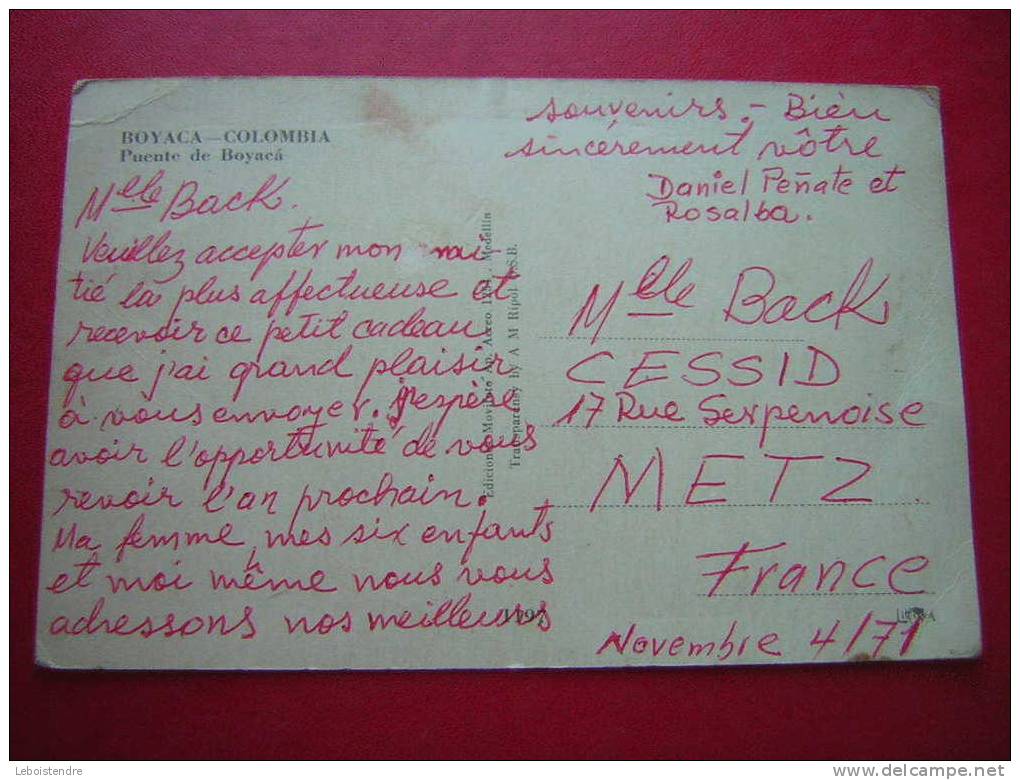 BOYACA—COLOMBIA
Puente de Boyacá
Mlle Back.
Veuillez accepter mon ami-
tié la plus affectueuse et
recevoir ce petit cadeau
que j'ai grand plaisir
à vous envoyer. J'espère
avoir l'opportunité de vous
revoir l'an prochain.
Ma femme, mes six enfants
et moi même nous vous
adressons nos meilleurs
souvenirs.- Bien
sincèrement vôtre
Daniel Peñate et
Rosalba.
Medellín
Transparency by A M Ripol
Mlle Back
CESSID
17 Rue Serpenoise
METZ
France
1797
Novembre 4/71
Leboistendre
©delcampe.net